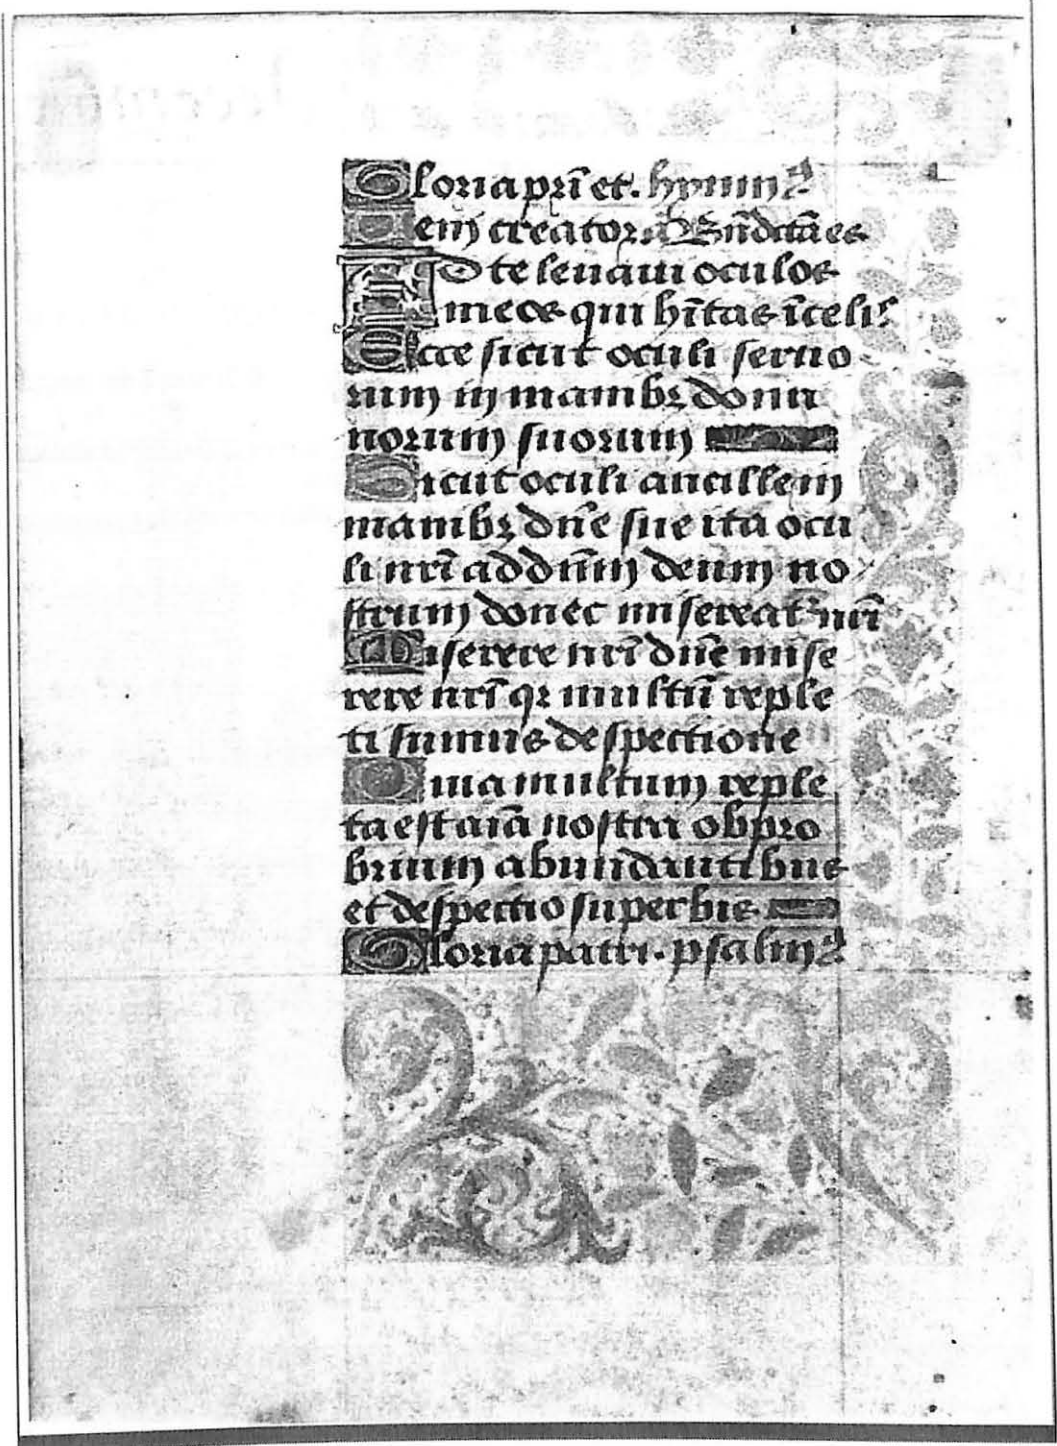 Gloria pr̄i et. hymnꝰ
Ueni creator. a Bn̄dcta es
AD te leuaui oculos
meos qui hītas ī celiˢ
Ecce sicut oculi seruo
rum in manibꝫ domi
norum suorum
Sicut oculi ancille in
manibꝫ dn̄e sue ita ocu
li nr̄i ad dn̄m deum no
strum donec misereatᷣ nr̄i
Miserere nr̄i dn̄e mise
rere nr̄i qꝛ multū reple
ti sumus despectione
Quia multum reple
ta est aīa nostra obpro
brium abundantibus
et despectio superbis
Gloria patri. psalmꝰ